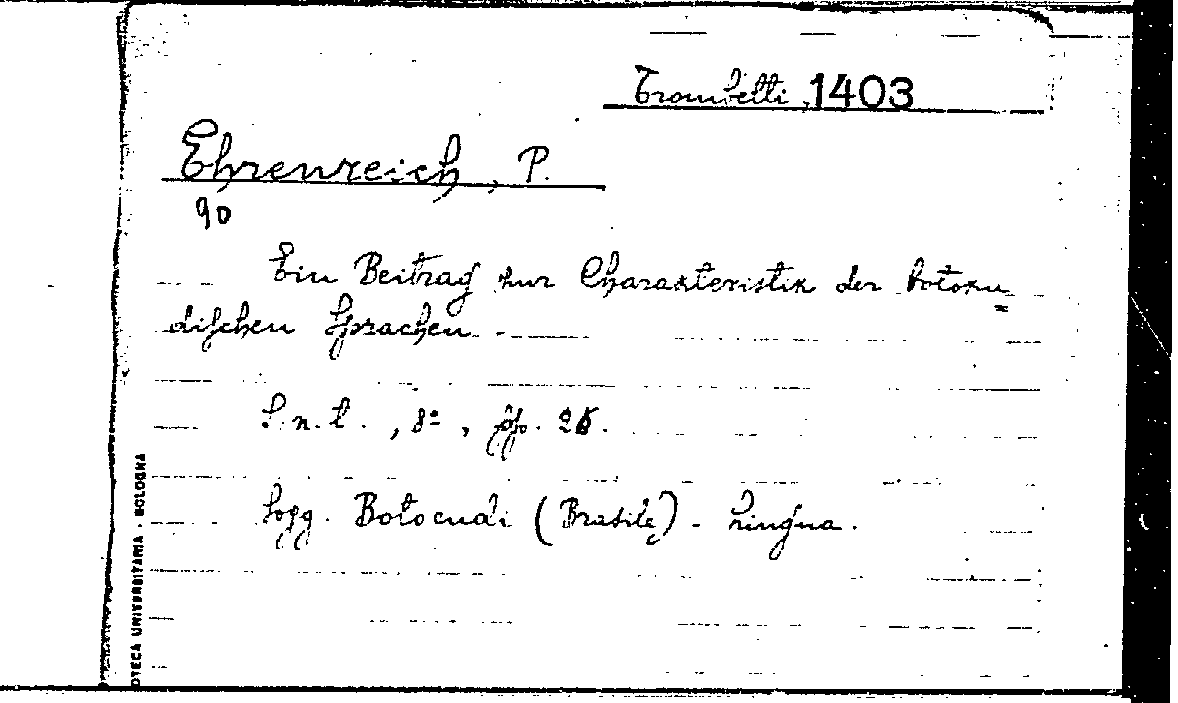 Trombetti 1403
Ehrenreich, P.
90
Ein Beitrag zur Charakteristik der botoku=
dischen Sprachen -
S. n. t. , 8º , pp. 26.
Sogg. Botocudi (Brasile) - Lingua.
OTECA UNIVERSITARIA - BOLOGNA